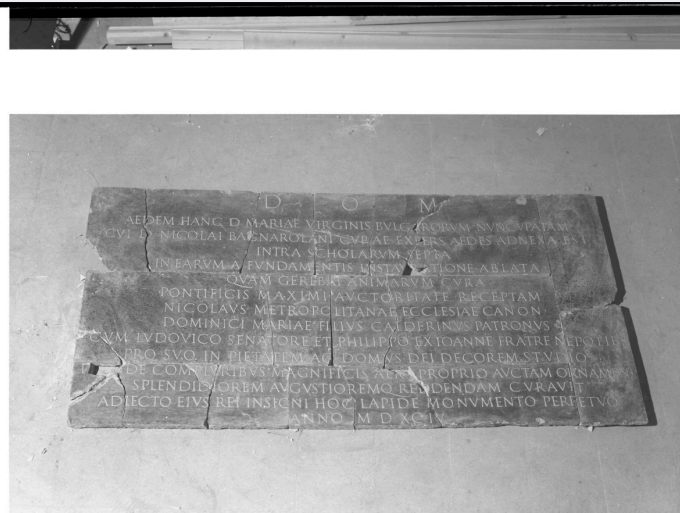 D O M
AEDEM HANC D MARIAE VIRGINIS BVLGARORVM NVNCVPATAM
CVI D NICOLAI BAGNAROLANI CVRAE EXPERS AEDES ADNEXA EST
INTRA SCHOLARVM SEPTA
IN EARVM A FVNDAMENTIS INSTAVRATIONE ABLATA
QVAM GERERET ANIMARVM CVRA
PONTIFICIS MAXIMI AVCTORITATE RECEPTAM
NICOLAVS METROPOLITANAE ECCLESIAE CANON
DOMINICI MARIAE FILIVS CALDERINVS PATRONVS
CVM LVDOVICO SENATORE ET PHILIPPO EX IOANNE FRATRE NEPOTIB
PRO SVO IN PIETATEM AC DOMVS DEI DECOREM STVDIO
DE COMPLVRIBVS MAGNIFICIS PROPRIO AVCTAM
SPLENDIDIOREM AVGVSTIOREMQ REDDENDAM CVRAVIT
ADIECTO EIVS REI INSIGNI HOC LAPIDE MONVMENTO PERPETVO
ANNO M D XCIV